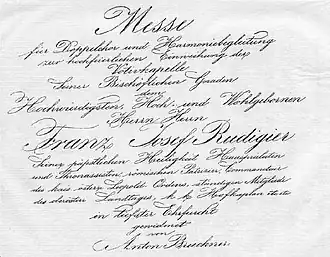 Messe
für Doppelchor und Harmoniebegleitung
zur hochfeierlichen Einweihung der
Votivkapelle
Seiner Bischöflichen Gnaden
dem
Hochwürdigsten, Hoch- und Wohlgebornen
Herrn Herrn
Franz Josef Rudigier
Seiner päpstlichen Heiligkeit Hausprälaten
und Thronassistent, römischen Patrizier, Commandeur
des kais. österr. Leopold Ordens, ständigen Mitgliede
des Landtages, k. k. Hofkaplan
in tiefster Ehrfurcht
gewidmet
von
Anton Bruckner